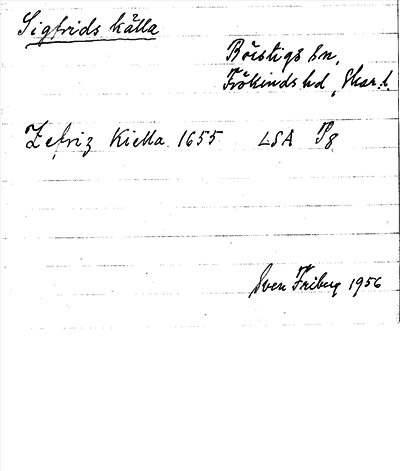 Sigfrids källa
Börstigs sn,
Frökinds hd, Skar. l.
Zefriz Kiella 1655 LSA P8
Sven Friberg 1956